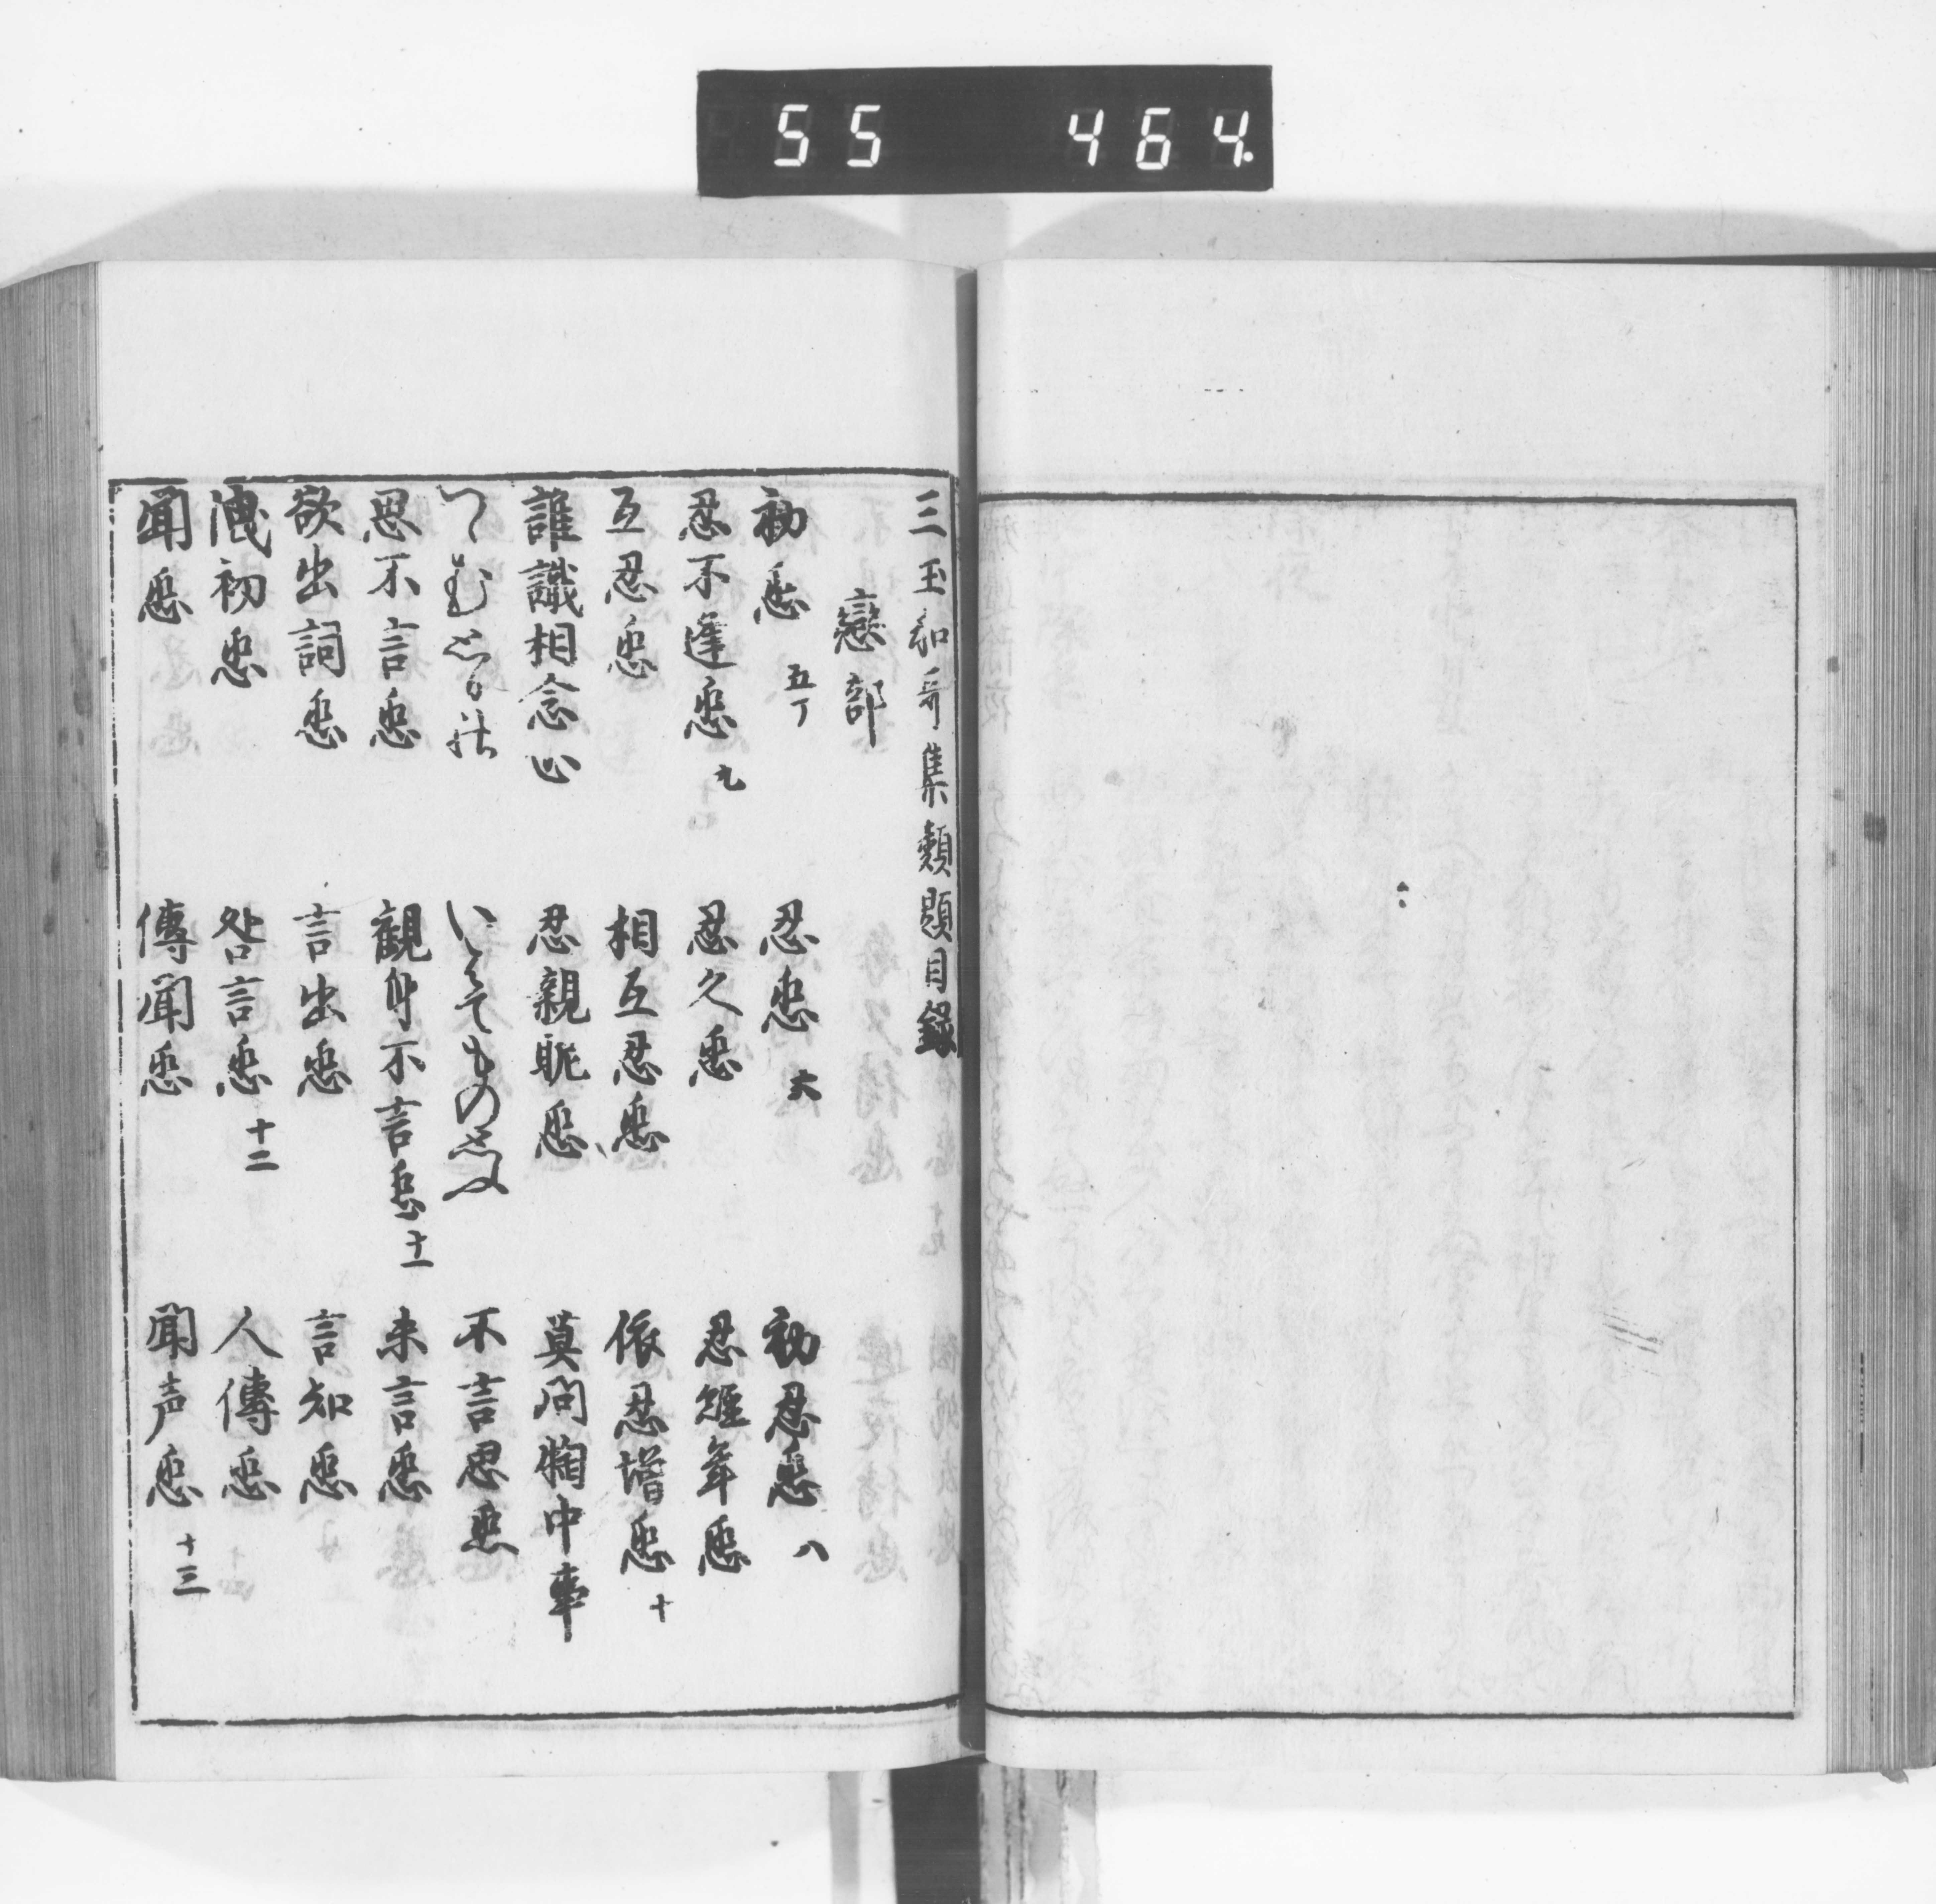 55 464.
三玉和哥集類題目録
戀部
初恋 五丁 忍恋 六 初忍恋 八
忍不逢恋 九 忍久恋 忍經年恋
互忍恋 相互忍恋 依忍増恋 十
誰識相念心 忍親眤恋 莫問胸中事
不言思恋
思不言恋 観身不言恋 十一 未言恋
欲出詞恋 言出恋 言知恋
洩初恋 咎言恋 十二 人傳恋
聞恋 傳聞恋 聞声恋 十三